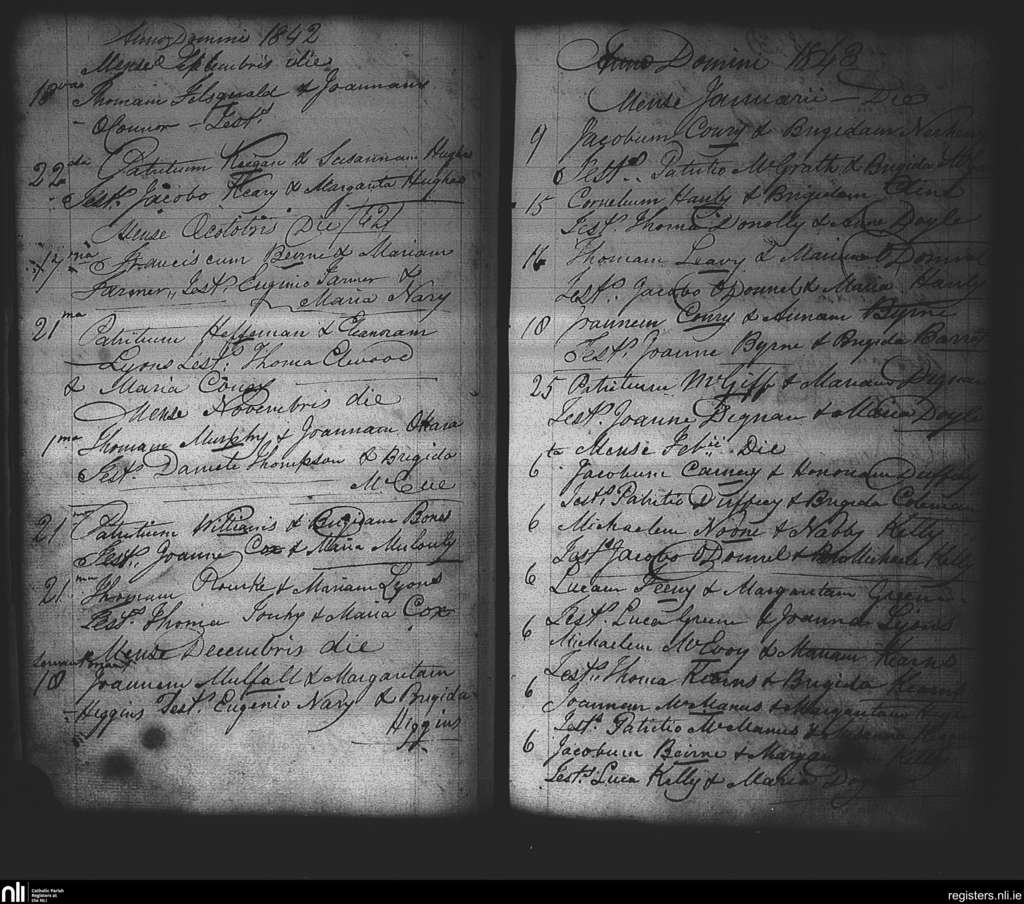 Anno Domini 1842
Mense Septembris die
18 Thomam Fitsgerald & Joannam
O Connor - Tests
22da Patritium Keegan & Susannam Hughes
Tests Jacobo Keary & Margarita Hughes
Mense Octobris Die /42/
17ma Franciscum Beirne & Mariam
Farmer, Tests Euginio Farmer &
Maria Nary
21ma Patritium Heffernan & Eleanoram
Lyons Tests Thoma Elwood
& Maria
Mense Novembris die
1ma Thomam Murphy & Joannam O Hara
Tests Daniele Thompson & Brigida
McCue
21 Patritium Williams & Brigidam Bones
Tests Joanne Cox & Maria
21ma Thomam Rourke & Mariam Lyons
Tests Thoma & Maria Cox
Mense Decembris die
18 Joannem Mulfall & Margaritam
Higgins Tests Eugenio Nary & Brigida
Higgins
Anno Domini 1843
Mense Januarii - Die
9 Jacobum Coury & Brigidam
Tests Patritio McGrath & Brigida
15 Cornelium Hanly & Brigidam
Tests Thoma Donolly & Anne Doyle
16 Thomam Leavy & Mariam O Donnel
Tests Jacobo O Donnel & Maria Hanly
18 Joannem Coury & Annam Byrne
Tests Joanne Byrne & Brigida
25 Patritium McGiff & Mariam Dignan
Tests Joanne Dignan & Maria Doyle
Mense Febii Die
6 Jacobum Carney & Honoriam Duffey
Tests Patritio Duffey & Brigida Coleman
6 Michaelem Noone & Nabby Kelly
Tests Jacobo O Donnel & Michaele Kelly
6 Lucam Feeny & Margaritam
Tests Luca Greene & Joanna Lyons
6 Michaelem McEvoy & Mariam Kearns
Tests Thoma Kearns & Brigida Kearns
6 Joannem McManus & Margaritam
Tests Patritio McManus &
6 Jacobum Beirne & Kelly
Tests Luca Kelly & Maria
nli
Catholic Parish
Registers at
the NLI
registers.nli.ie